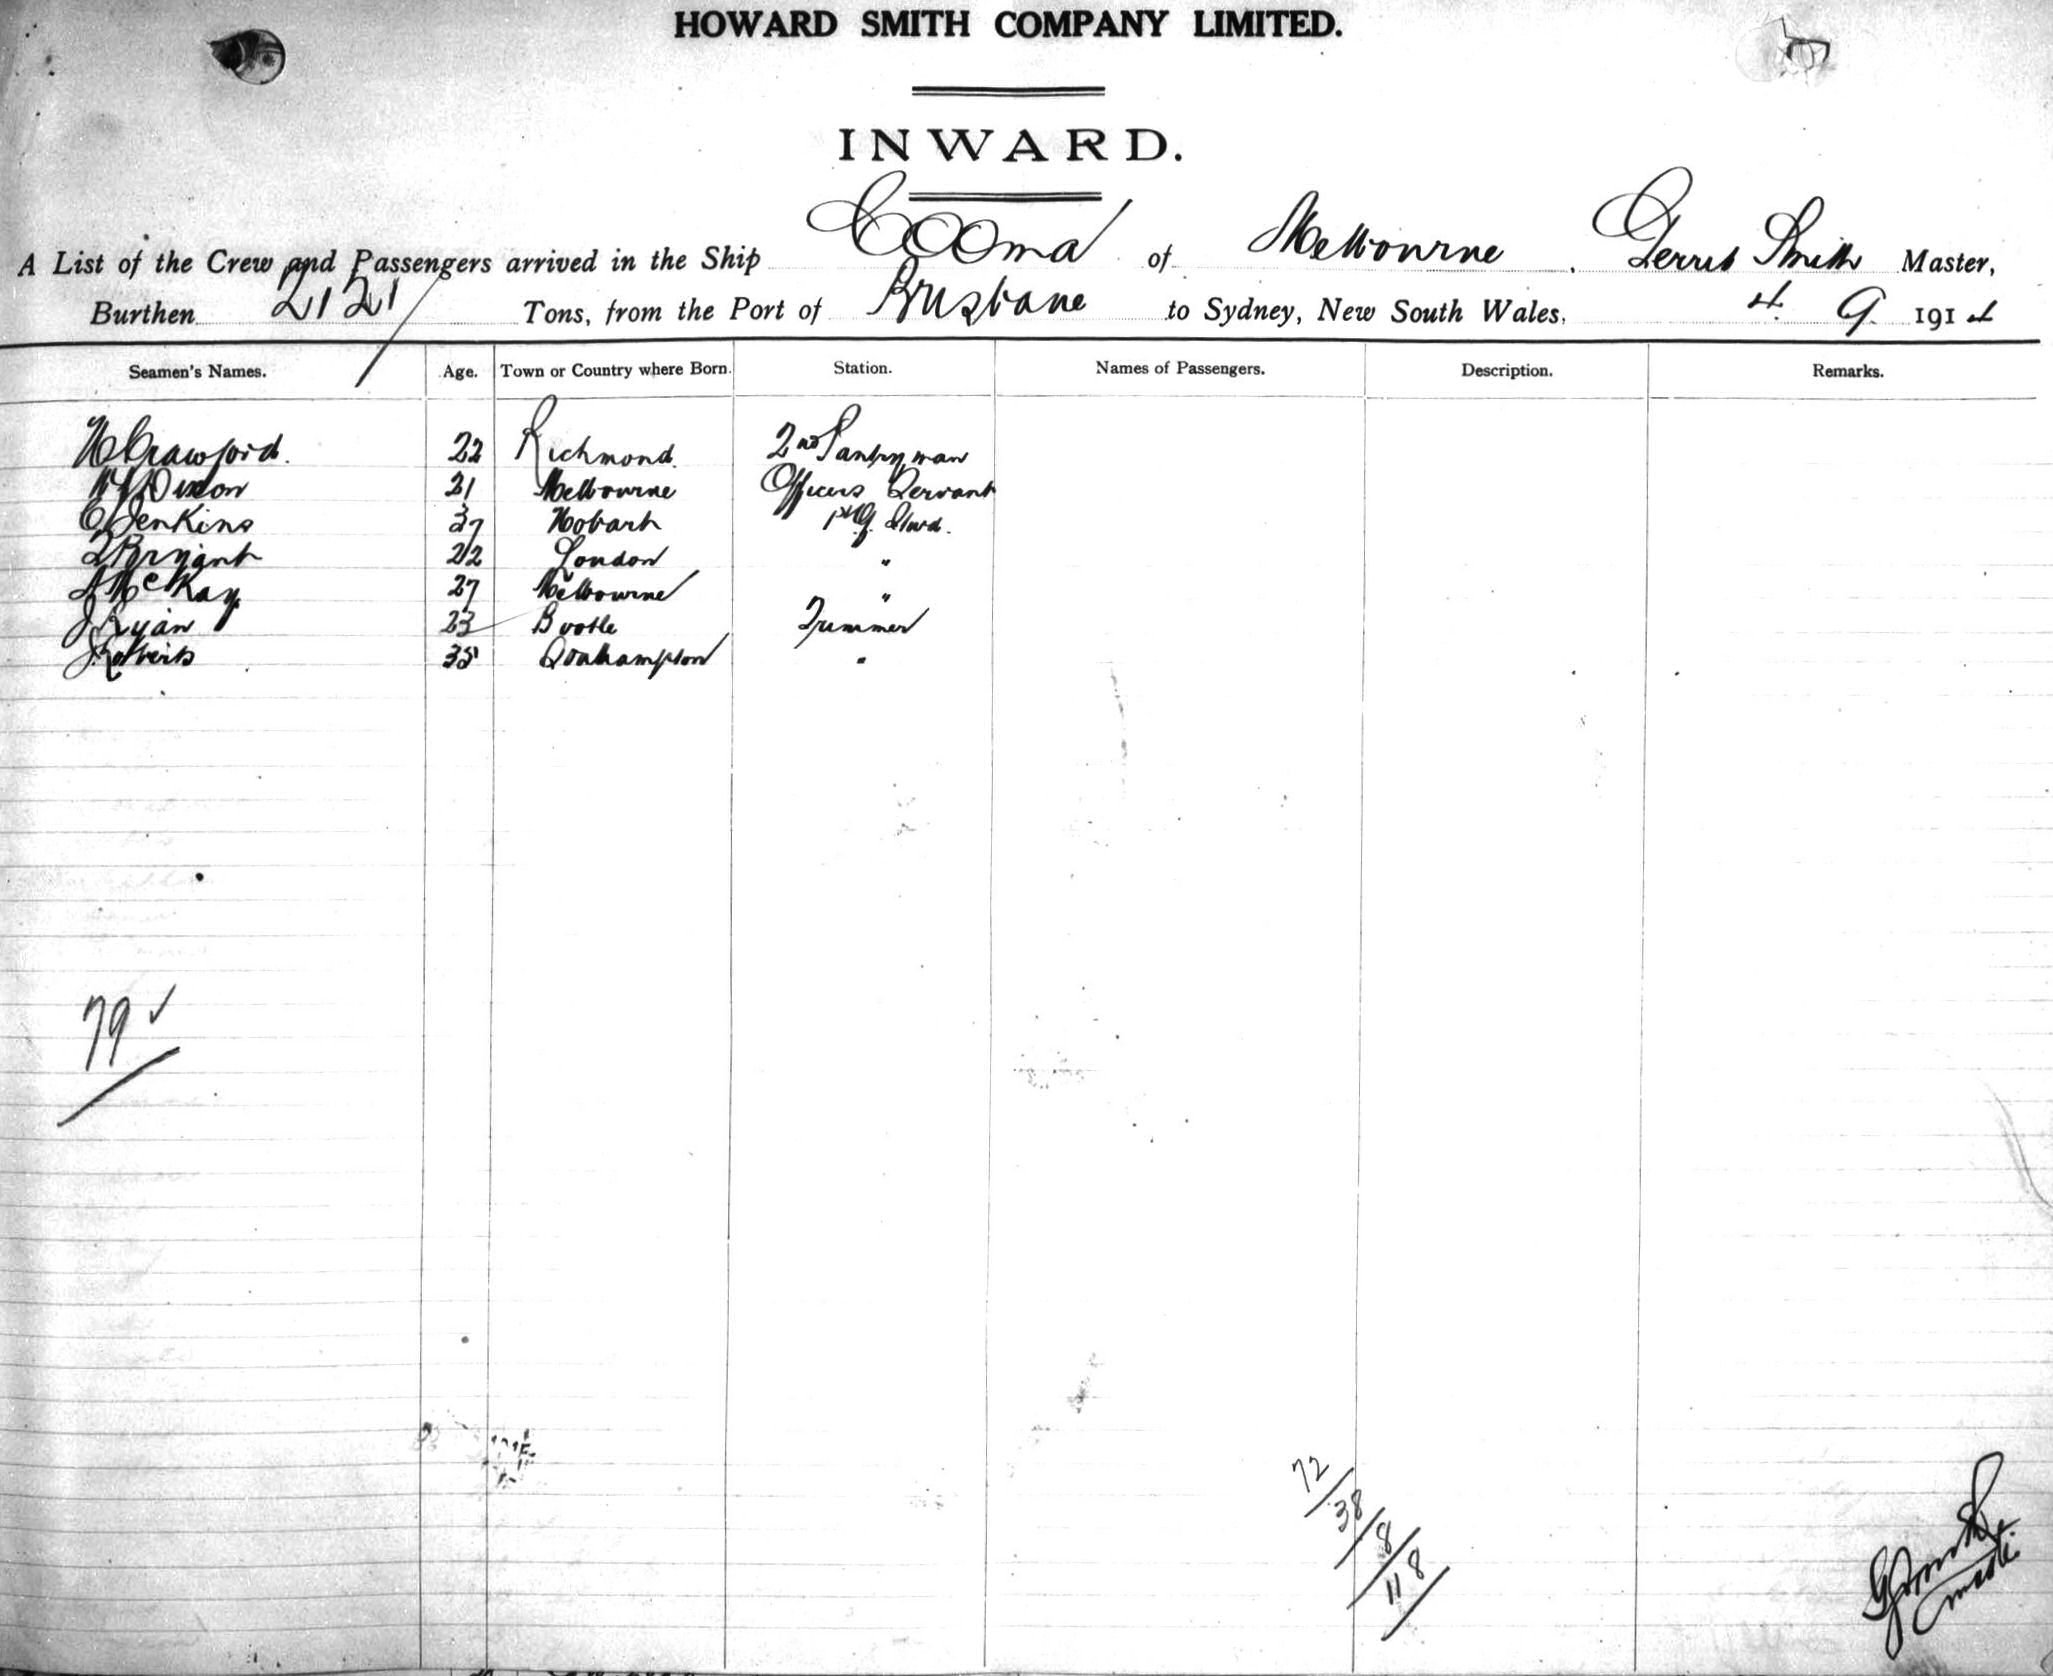 HOWARD SMITH COMPANY LIMITED.
INWARD.
A List of the Crew and Passengers arrived in the Ship Cooma of Melbourne, Gerrit Smith Master,
Burthen 2121 Tons, from the Port of Brisbane to Sydney, New South Wales, 4. 9. 1914
Seamen's Names. Age. Town or Country where Born. Station. Names of Passengers. Description. Remarks.
Crawford. 22 Richmond. 2nd Pantryman
Dixon 21 Melbourne Officers Servant
Jenkins 37 Hobart 1st G. Stwd.
Bryant 22 London "
McKay 27 Melbourne "
J Ryan 23 Bootle Trimmer
J Roberts 35 Southampton "
79 ✓
72/
38/
8/
118/
G Smith
Master